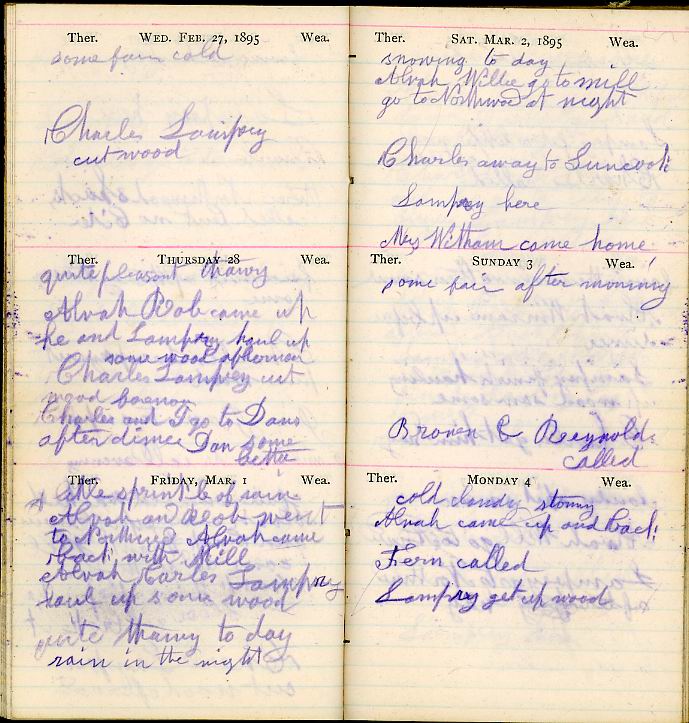 Ther. WED. FEB. 27, 1895 Wea.
some fair cold
Charles Lamprey
cut wood
Ther. THURSDAY 28 Wea.
quite pleasant thawy
Alvah Rob came up
he and Lamprey haul up
some wood afternoon
Charles Lamprey cut
wood
Charles and I go to Dans
after dinner Dan some
better
Ther. FRIDAY, MAR. 1 Wea.
A little sprinkle of rain
Alvah and Rob went
to Northwood Alvah came
back with Mill
Alvah Carles Lamprey
haul up some wood
quite thawy to day
rain in the night
Ther. SAT. MAR. 2, 1895 Wea.
snowing to day
Alvah Willie go to mill
go to Northwood at night
Charles away to Suncook
Lamprey here
Mrs Witham came home
Ther. SUNDAY 3 Wea.
some fair after morning
Brown C Reynolds
called
Ther. MONDAY 4 Wea.
cold cloudy stormy
Alvah came up and back
Fern called
Lamprey get up wood